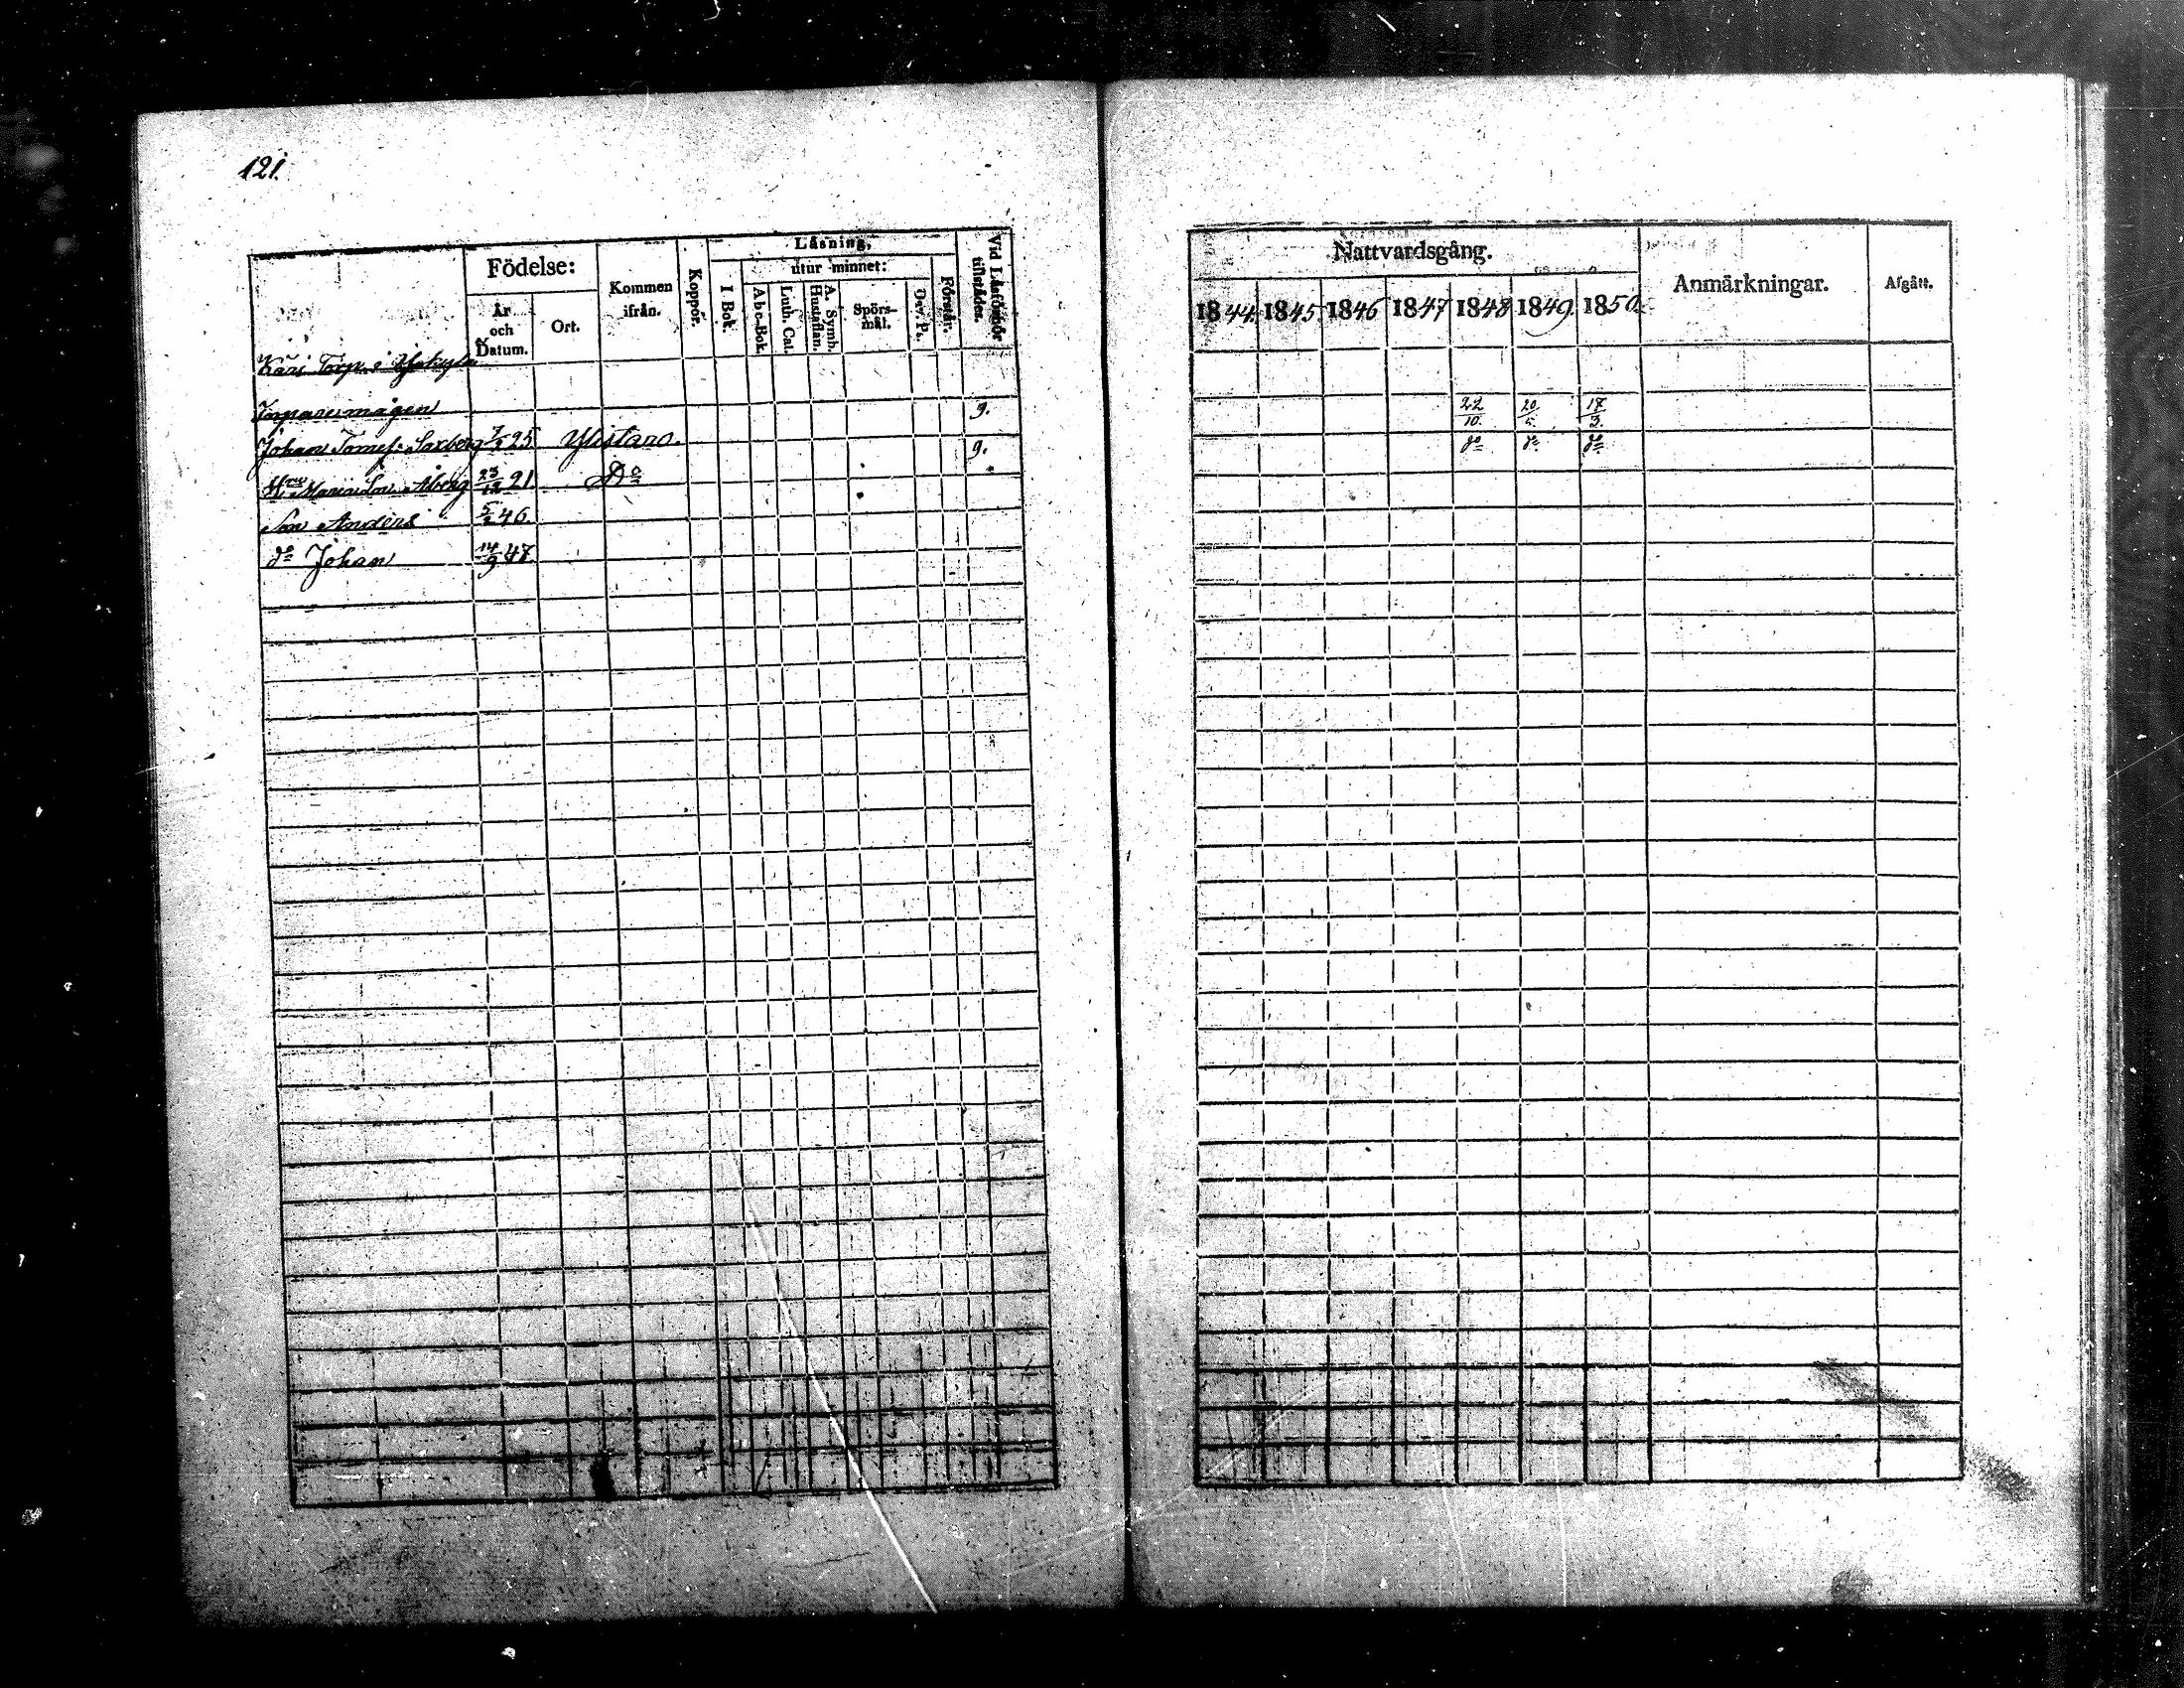 121.
Födelse:
År och Datum.
Ort.
Kommen ifrån.
Koppor.
Läsning,
utur minnet:
I Bok.
Abc-Bok.
Luth. Cat.
A. Symb. Hustaflan.
Spörs-mål.
Dav. Ps.
Förstår.
Vid Läsförhör tillstädes.
Kari Torp. i
Torparemågen
Johan Tomass: Saxberg 7/2 25 Ylistaro. 9.
Hru Maria Lov. Åberg 23/12 21. Do 9.
Son Anders 5/2 46.
do Johan 14/9 47.
Nattvardsgång.
1844. 1845. 1846 1847 1848 1849. 1850.
Anmärkningar.
Afgått.
22/10. 20/5. 17/3.
do do do